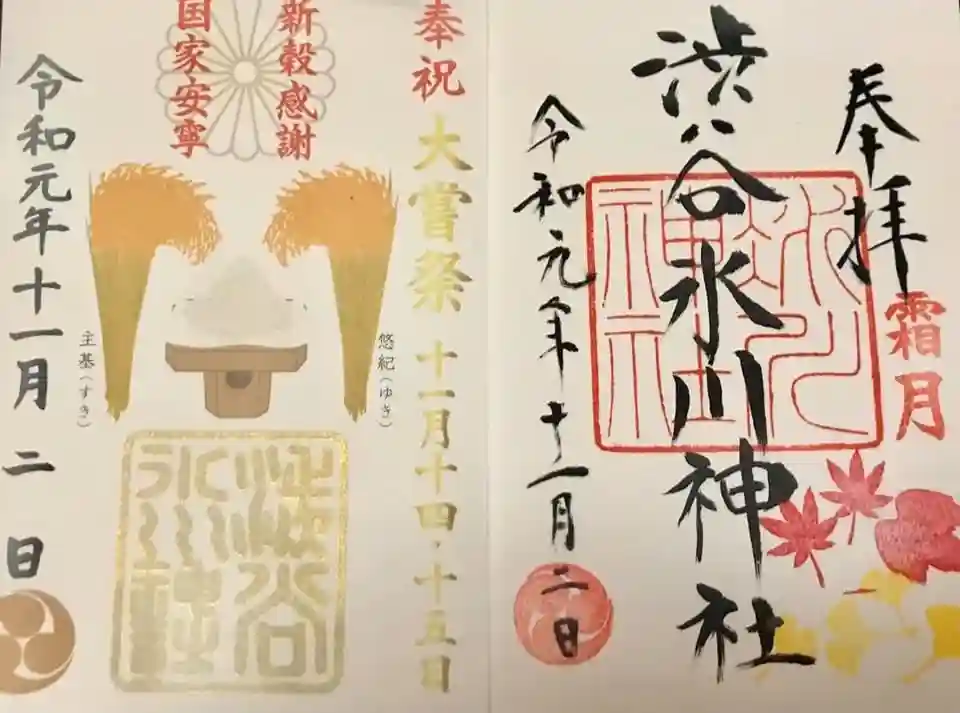 奉拝
霜月
渋谷氷川神社
氷川
神社
令和元年十一月二日
奉祝
大嘗祭 十一月十四・十五日
新穀感謝
国家安寧
悠紀(ゆき)
主基(すき)
渋谷
氷川
神社
令和元年十一月二日